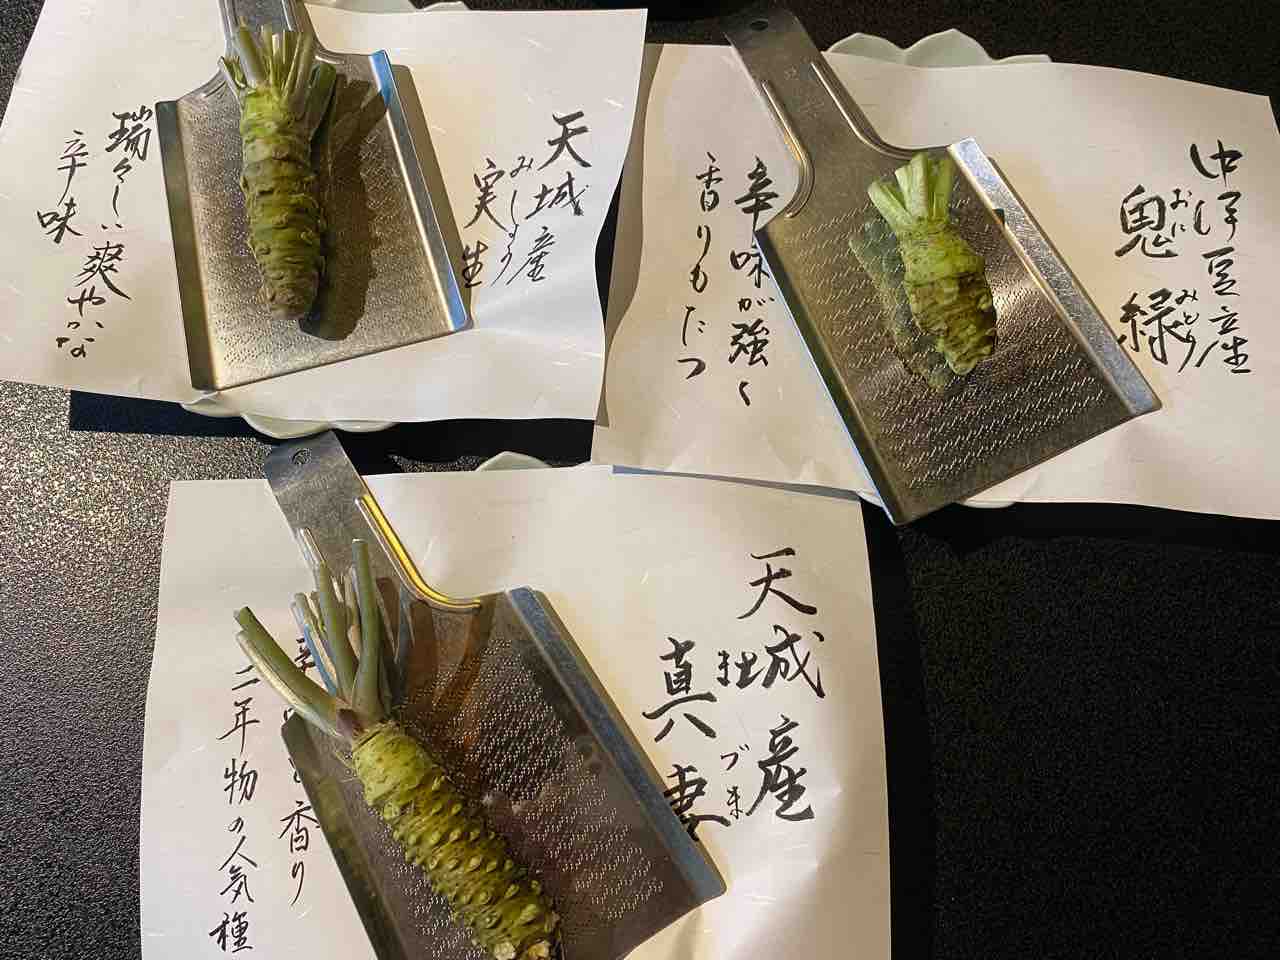 天城産
実生
みしょう
瑞々しい爽やかな
辛味
中伊豆産
鬼緑
おに みどり
辛味が強く
香りもたつ
天城産
真妻
づま
香り
二年物の人気種